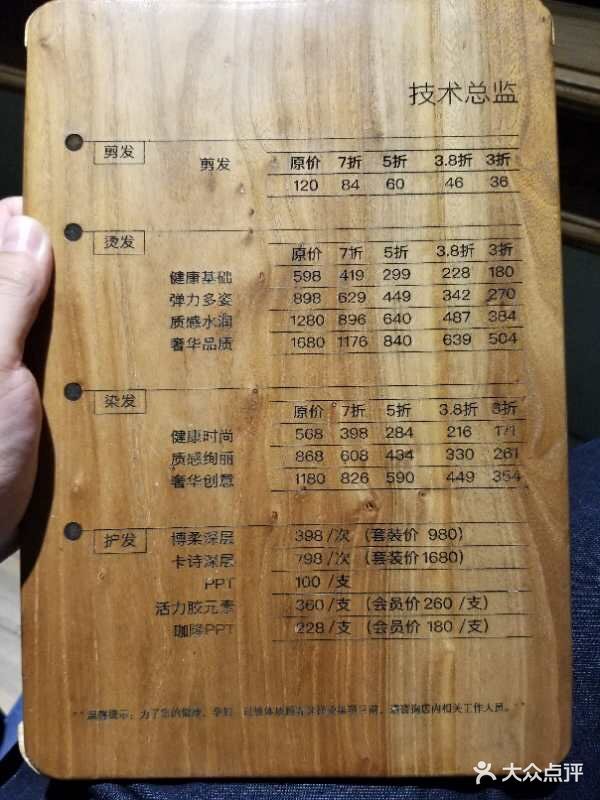 技术总监
剪发
剪发 原价 7折 5折 3.8折 3折
120 84 60 46 36
烫发
原价 7折 5折 3.8折 3折
健康基础 598 419 299 228 180
弹力多姿 898 629 449 342 270
质感水润 1280 896 640 487 384
奢华品质 1680 1176 840 639 504
染发
原价 7折 5折 3.8折 3折
健康时尚 568 398 284 216 171
质感绚丽 868 608 434 330 261
奢华创意 1180 826 590 449 354
护发 博柔深层 398/次 (套装价 980)
卡诗深层 798/次 (套装价1680)
PPT 100/支
活力胶元素 360/支 (会员价 260/支)
PPT 228/支 (会员价 180/支)
温馨提示：为了您的健康，孕妇 请咨询店内相关工作人员。
大众点评